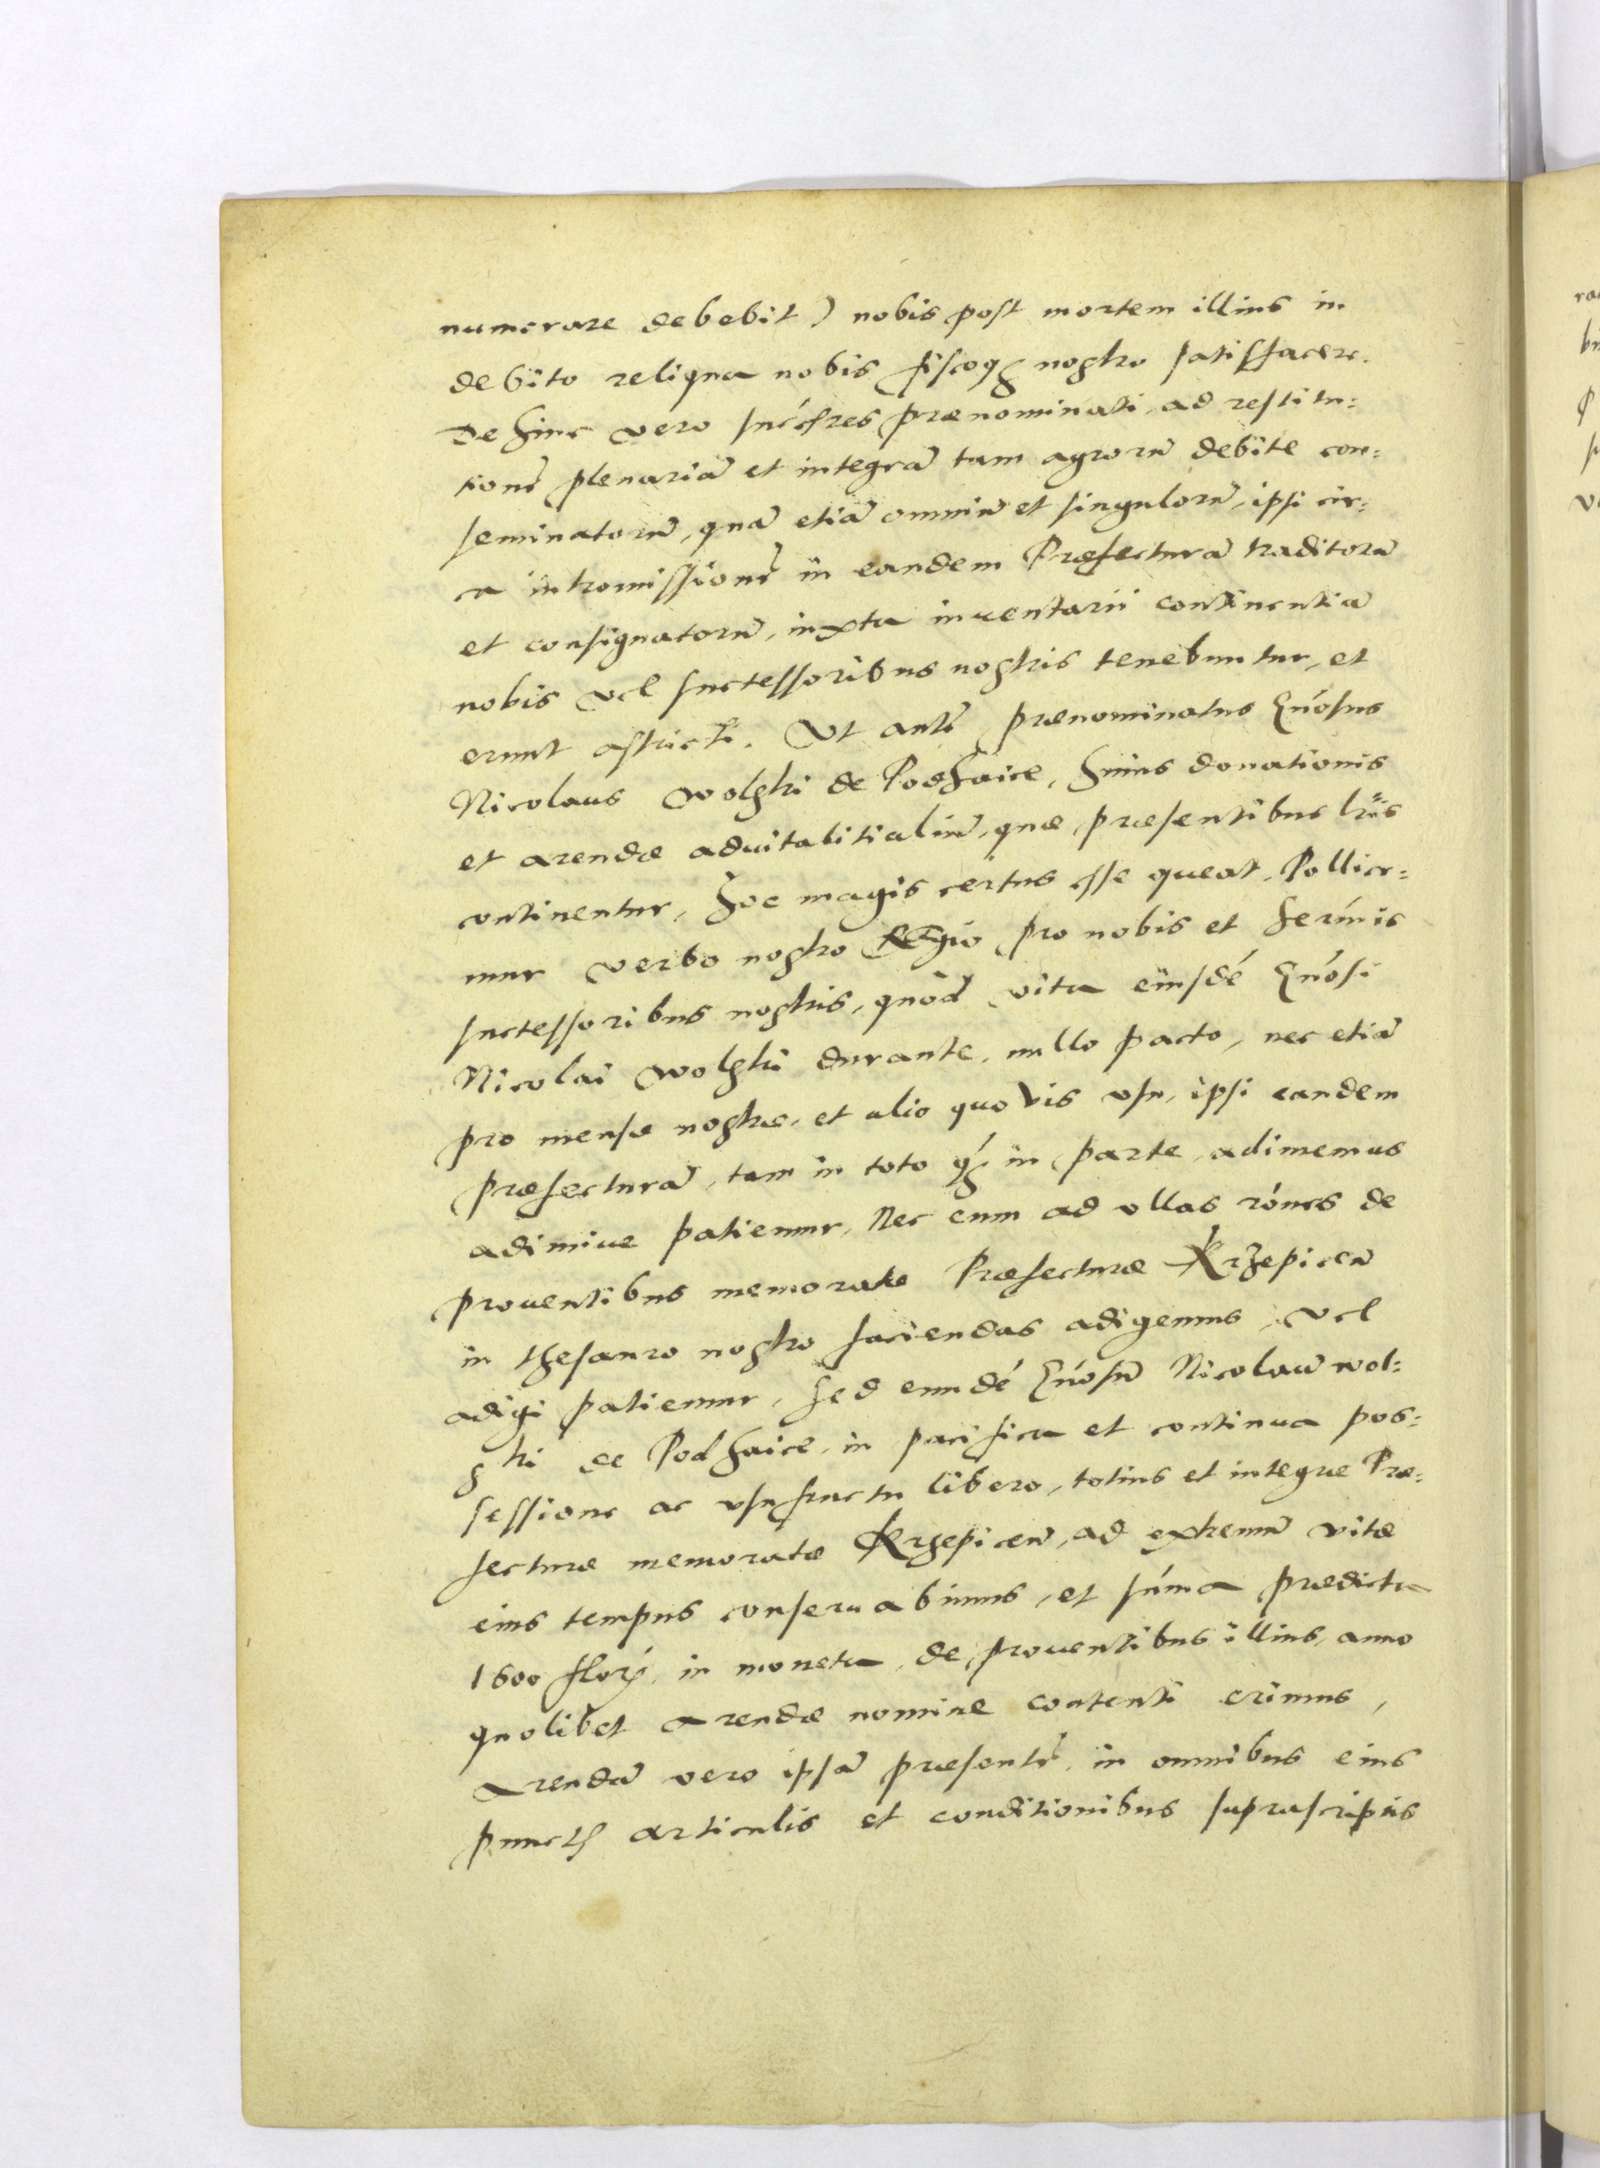 numerare debebit) nobis post mortem illius in
debito reliqua nobis fiscoq nostro satisfacere.
De hinc vero succ̃res prænominati, ad restitu:
tionẽ plenariã et integrã tam agrorũ debite con:
seminatorũ, quã etiã omniũ et singulorũ, ipsi cir:
ca intromissionẽ in eandem Præfecturã traditorũ
et consignatorũ, iuxta inuentarii continentiã
nobis vel successoribus nostris tenebuntur, et
erunt astricti. Ut autẽ prænominatus Gñosus
Nicolaus Wolski de Podhaice, huius donationis
et arendæ aduitalitialiũ, quæ præsentibus lr̃is
continentur, hoc magis certus esse queat, Pollice:
mur verbo nostro Regio pro nobis et Serm̃is
successoribus nostris, quòd vita eiusdẽ Gñosi
Nicolai Wolski durante, nullo pacto, nec etiã
pro mensæ nostræ, et alio quovis usu, ipsi eandem
præfecturã, tam in toto q̃ in parte, adimemus
adimive patiemur, Nec eum ad ullas rõnes de
prouentibus memoratæ Præfecturæ Krzepicen̄
in thesauro nostro faciendas adigemus, vel
adigi patiemur, sed eundẽ Gñosũ Nicolaũ wol:
ski de Podhaice, in pacifica et continua pos:
sessione ac usufructu libero, totius et integræ Præ:
fecturæ memoratæ Krzepicen̄, ad extremũ vitæ
eius tempus conseruabimus, et sum̃a prædicta
1600 flor̃, in moneta, de prouentibus illius, anno
quolibet arendæ nomine contenti erimus,
Arendã vero ipsã præsentẽ, in omnibus eius
punctis articulis et conditionibus suprascriptis